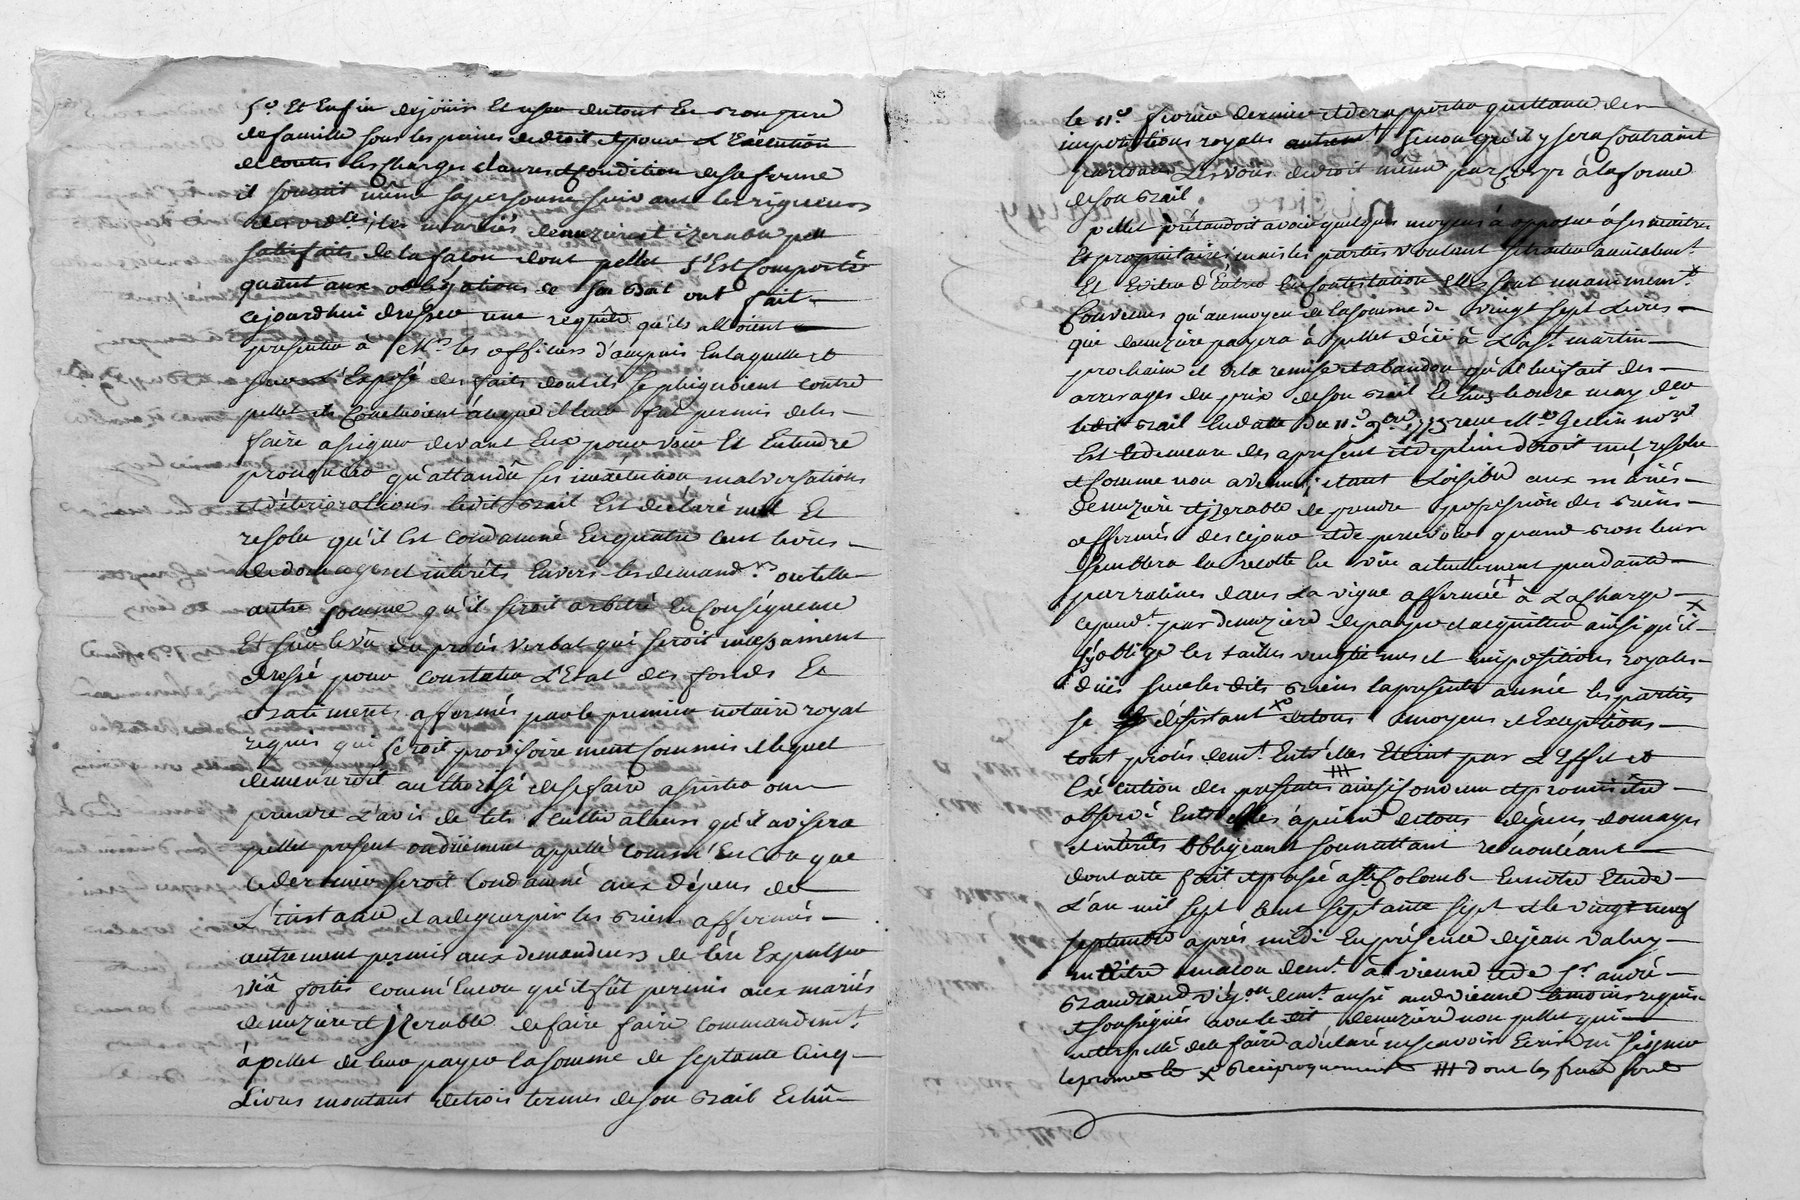 5.o Et Enfin de jouir Et user du tout En bon pere
de famille sous les peines de droit et pour L'Execution
de toutes les charges clauses et condition de sa ferme
il soumit même sa personne suivant les rigueurs
des ord.ces, les mariés demuziere et izerable peu
satisfaits de la façon dont pellet s'Est Comporté
quant aux obligations de son bail ont fait
cejourdhui dresser une requête qu'ils alloient
presenter à Mrs les officiers d'ampuis En laquelle et
sur L'Exposé des faits dont ils se plaignoient contre
pellet ils Concluoient à ce que il leur fut permis de les
faire assigner devant Eux pour voir Et Entendre
prononcer qu'attandû ses inexécution malversations
et déteriorations ledit bail Est déclaré nul Et
resolu qu'il Est condamné En quatre cent livres
de domages et intérêts Envers les demand.rs ou telle
autre somme qu'il seroit arbitré En Conséquence
Et sur le vu du procés verbal qui seroit incessament
dressé pour constater L'Etat des fonds Et
batiments affermés par le premier notaire royal
requis qui seroit provisoirement commis et lequel
demeureroit authorisé de se faire assister ou
prendre L'avis de tels cultivateurs qu'il avisera
pellet present ou düement appellé comm'Encor que
ce dernier seroit Condamné aux dépens de
L'instance et a deguerpir les biens affermés
autrement permis aux demandeurs de l'en Expulser
viâ fortis comm'Encor qu'il fût permis aux mariés
demuziere et izerable de faire faire commandem.t
à pellet de leur payer la somme de septante cinq
Livres montant de trois termes de son bail Echû
le 11.e fevrier dernier et de rapporter quittance des
impositions royales autrem.t Sinon qu'il y sera Contraint
par toutes Les voies de droit même par Corps à la forme
de son bail
pellet prétandoit avoir quelques moyens à opposer à ses maitres
Et proprietaires mais les parties voulant se traiter amicalem.t
Et Eviter d'Entrer En Contestation Elles sont unanimem.t
Convenus qu'au moyen de la somme de vingt sept Livres
que demuziere payera à pellet d'ici à La S.t martin
prochaine et de la remise et abandon qu'il lui fait des
arrerages du prix de son bail
ledit bail En datte du 11.e 9bre 1775 reçu M.e Gerlin no.re
Est Et demeure des apresent et de plein droit nul resolu
et comme non avenu, etant Loisible aux mariés
demuziere et izerable de prendre possession des biens
affermés des ce jour et de percevoir quand bon leur
semblera la recolte En vin actuellement pendante
par racines dans La vigne affermée à La charge
cepend.t par demuziere de payer et acquitter ainsi qu'il
s'y oblige les tailles vingtiemes et impositions royales
düës sur les dits biens la presente année les parties
se désistant de tous moyens et Exceptions
tout procés demt Entr'Elles Eteint par L'Effet et
Exécution des presentes ainsi convenu et promis Etre
observé Entr'Elles à peine de tous dépens domages
et intérêts obligeant soumettant renonceant
dont acte fait et passé a S.te Colombe En notre Etude
L'an mil sept Cent septante sept et le vingt neuf
septembre après midi En présence de jean valuy
maitre maçon dem.t à vienne et de S.r andré
brandrand vig.on dem.t aussi audvienne temoins requis
et soussignés avec le dit demuziere non pellet qui
interpellé de le faire a déclaré ne scavoir Ecrire ni signer
x réciproquement ||| dont les frais sont